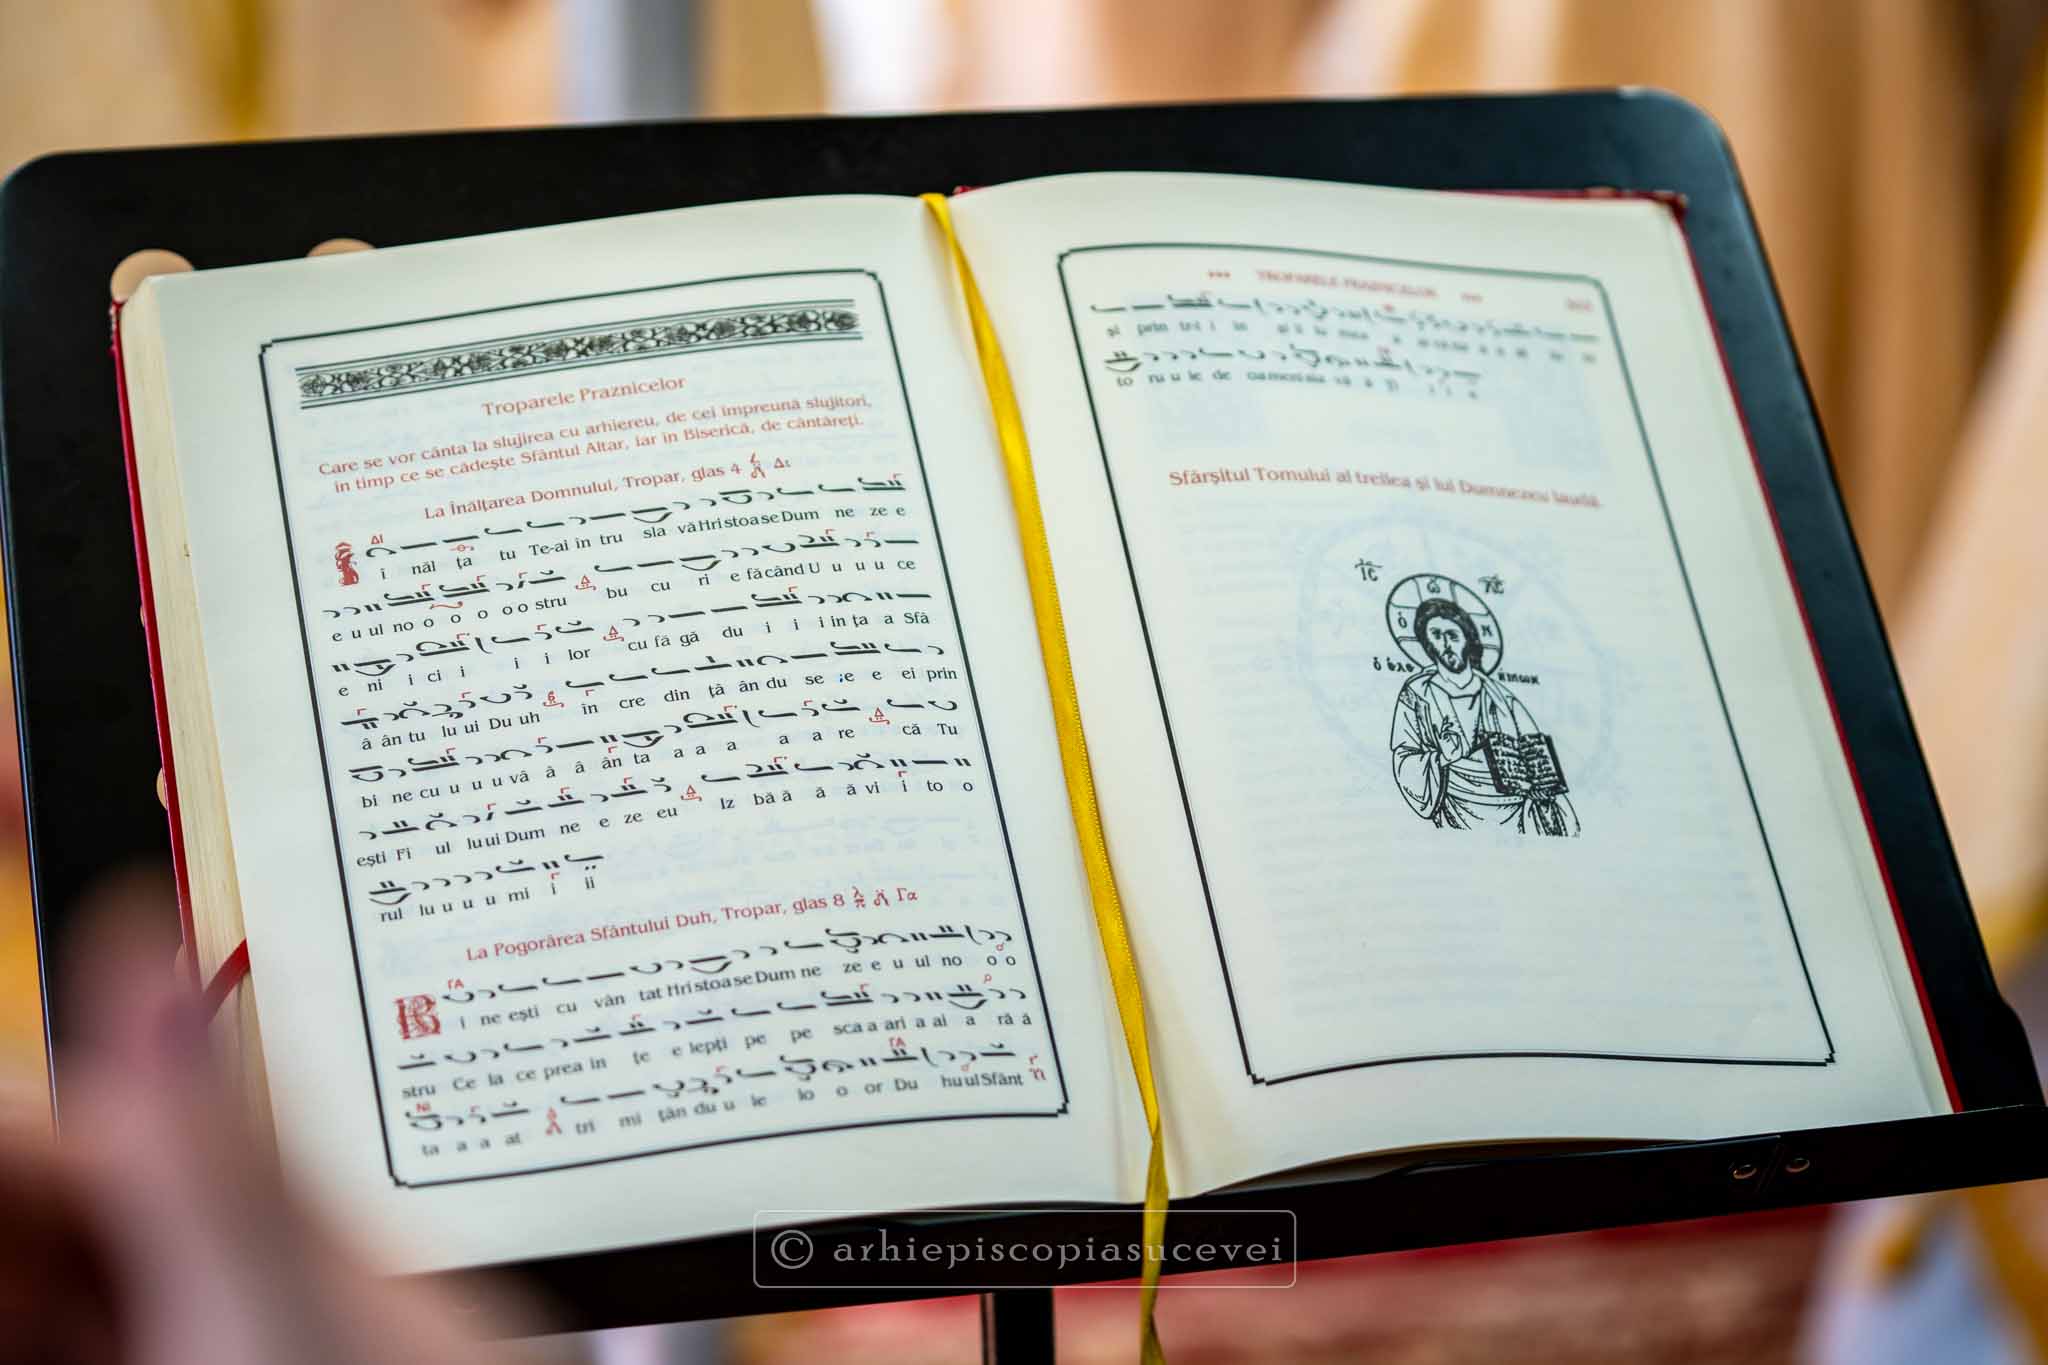 Troparele Praznicelor
Care se vor cânta la slujirea cu arhiereu, de cei împreună slujitori,
în timp ce se cădește Sfântul Altar, iar în Biserică, de cântăreți.
La Înălțarea Domnului, Tropar, glas 4 Δι
î năl ța tu Te-ai în tru sla vă Hri stoa se Dum ne ze e
e u ul no o o o o o stru bu cu ri e fă când U u u u ce
e ni i ci i i i lor cu fă gă du i i i in ța a Sfâ
â ân tu lu ui Du uh în cre din țâ ân du se e e e ei prin
bi ne cu u u u vâ â â ân ta a a a a a re că Tu
ești Fi ul lu ui Dum ne e ze eu Iz bă ă ă ă vi i to o
rul lu u u u mi i ii
La Pogorârea Sfântului Duh, Tropar, glas 8 Γα
B i ne ești cu vân tat Hri stoa se Dum ne ze e u ul no o o
stru Ce la ce prea în țe e lepți pe pe sca a ari a ai a ră ă
ta a a at tri mi țân du u le lo o or Du hu ul Sfânt
TROPARELE PRAZNICELOR
și prin tr
to ru u le de
Sfârșitul Tomului al treilea și lui Dumnezeu laudă.
IC XC
ὁ ὤ Ν
© arhiepiscopiasucevei